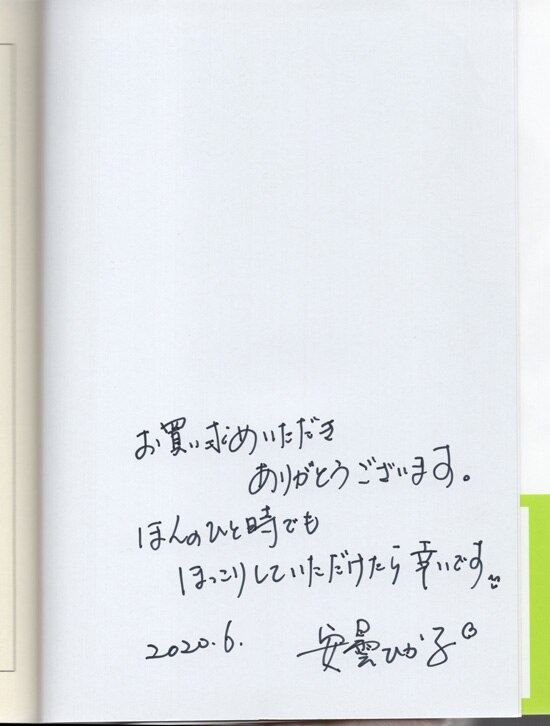 お買い求めいただき
ありがとうございます。
ほんのひと時でも
ほっこりしていただけたら幸いです
2020.6.
安曇ひか子